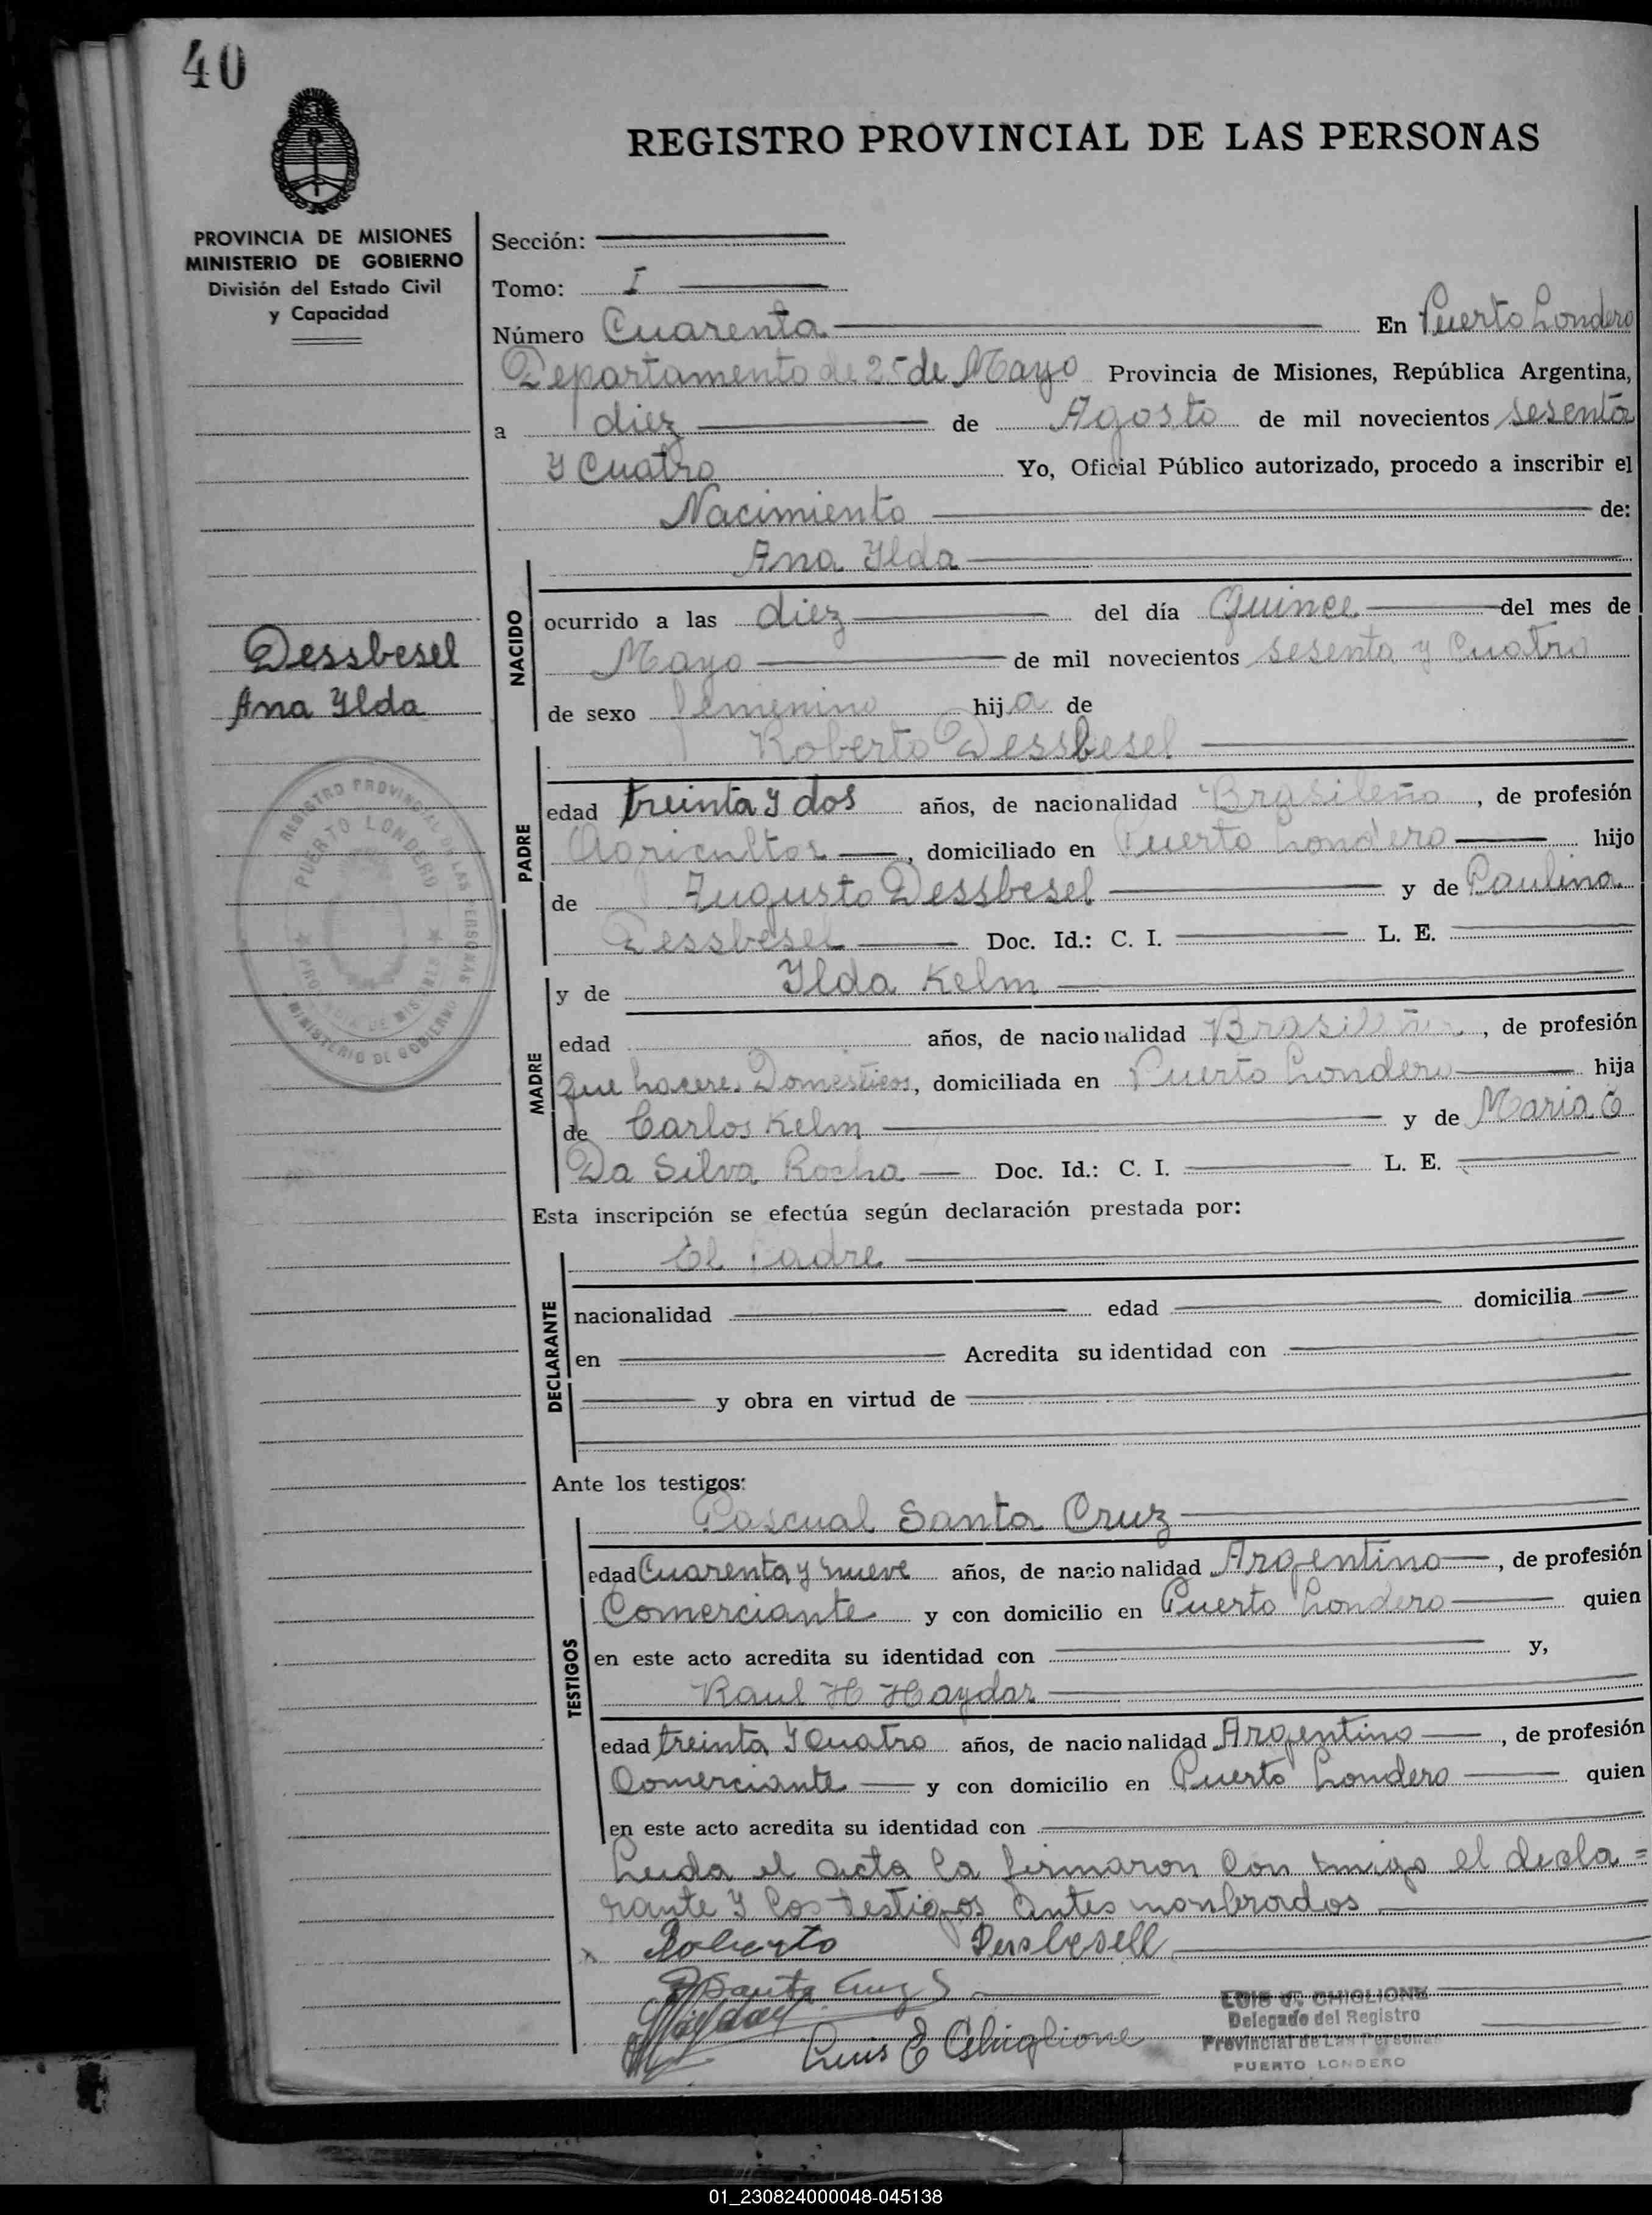 40
REGISTRO PROVINCIAL DE LAS PERSONAS
PROVINCIA DE MISIONES
MINISTERIO DE GOBIERNO
División del Estado Civil
y Capacidad
Sección:
Tomo: I
Número Cuarenta En Puerto Londero
Departamento de 25 de Mayo Provincia de Misiones, República Argentina,
a diez de Agosto de mil novecientos sesenta
y Cuatro Yo, Oficial Público autorizado, procedo a inscribir el
Nacimiento de:
Ana Ylda
NACIDO
ocurrido a las diez del día Quince del mes de
Mayo de mil novecientos sesenta y Cuatro
de sexo femenino hija de
Dessbesel
Ana Ylda
Roberto Dessbesel
PADRE
edad treinta y dos años, de nacionalidad Brasileño, de profesión
Agricultor, domiciliado en Puerto Londero hijo
de Augusto Dessbesel y de Paulina
Dessbesel Doc. Id.: C. I. L. E.
REGISTRO PROVINCIAL DE LAS PERSONAS
PUERTO LONDERO
PROVINCIA DE MISIONES
MINISTERIO DE GOBIERNO
y de Ylda Kelm
MADRE
edad años, de nacionalidad Brasileña, de profesión
que hacere. Domésticos, domiciliada en Puerto Londero hija
de Carlos Kelm y de Maria E
Da Silva Rocha Doc. Id.: C. I. L. E.
Esta inscripción se efectúa según declaración prestada por:
El Padre
DECLARANTE
nacionalidad edad domicilia
en Acredita su identidad con
y obra en virtud de
Ante los testigos:
Pascual Santa Cruz
TESTIGOS
edad Cuarenta y nueve años, de nacionalidad Argentino, de profesión
Comerciante y con domicilio en Puerto Londero quien
en este acto acredita su identidad con y,
Raul H Haydar
edad treinta y Cuatro años, de nacionalidad Argentino, de profesión
Comerciante y con domicilio en Puerto Londero quien
en este acto acredita su identidad con
Leida el acta la firmaron Con tmigo el decla=
rante y los testigos Antes monbrados
Roberto Dessbesell
PSanta Cruz S
Haydar
Luis E Ghiglione
LUIS E. GHIGLIONE
Delegado del Registro
Provincial de Las Personas
PUERTO LONDERO
01_230824000048-045138